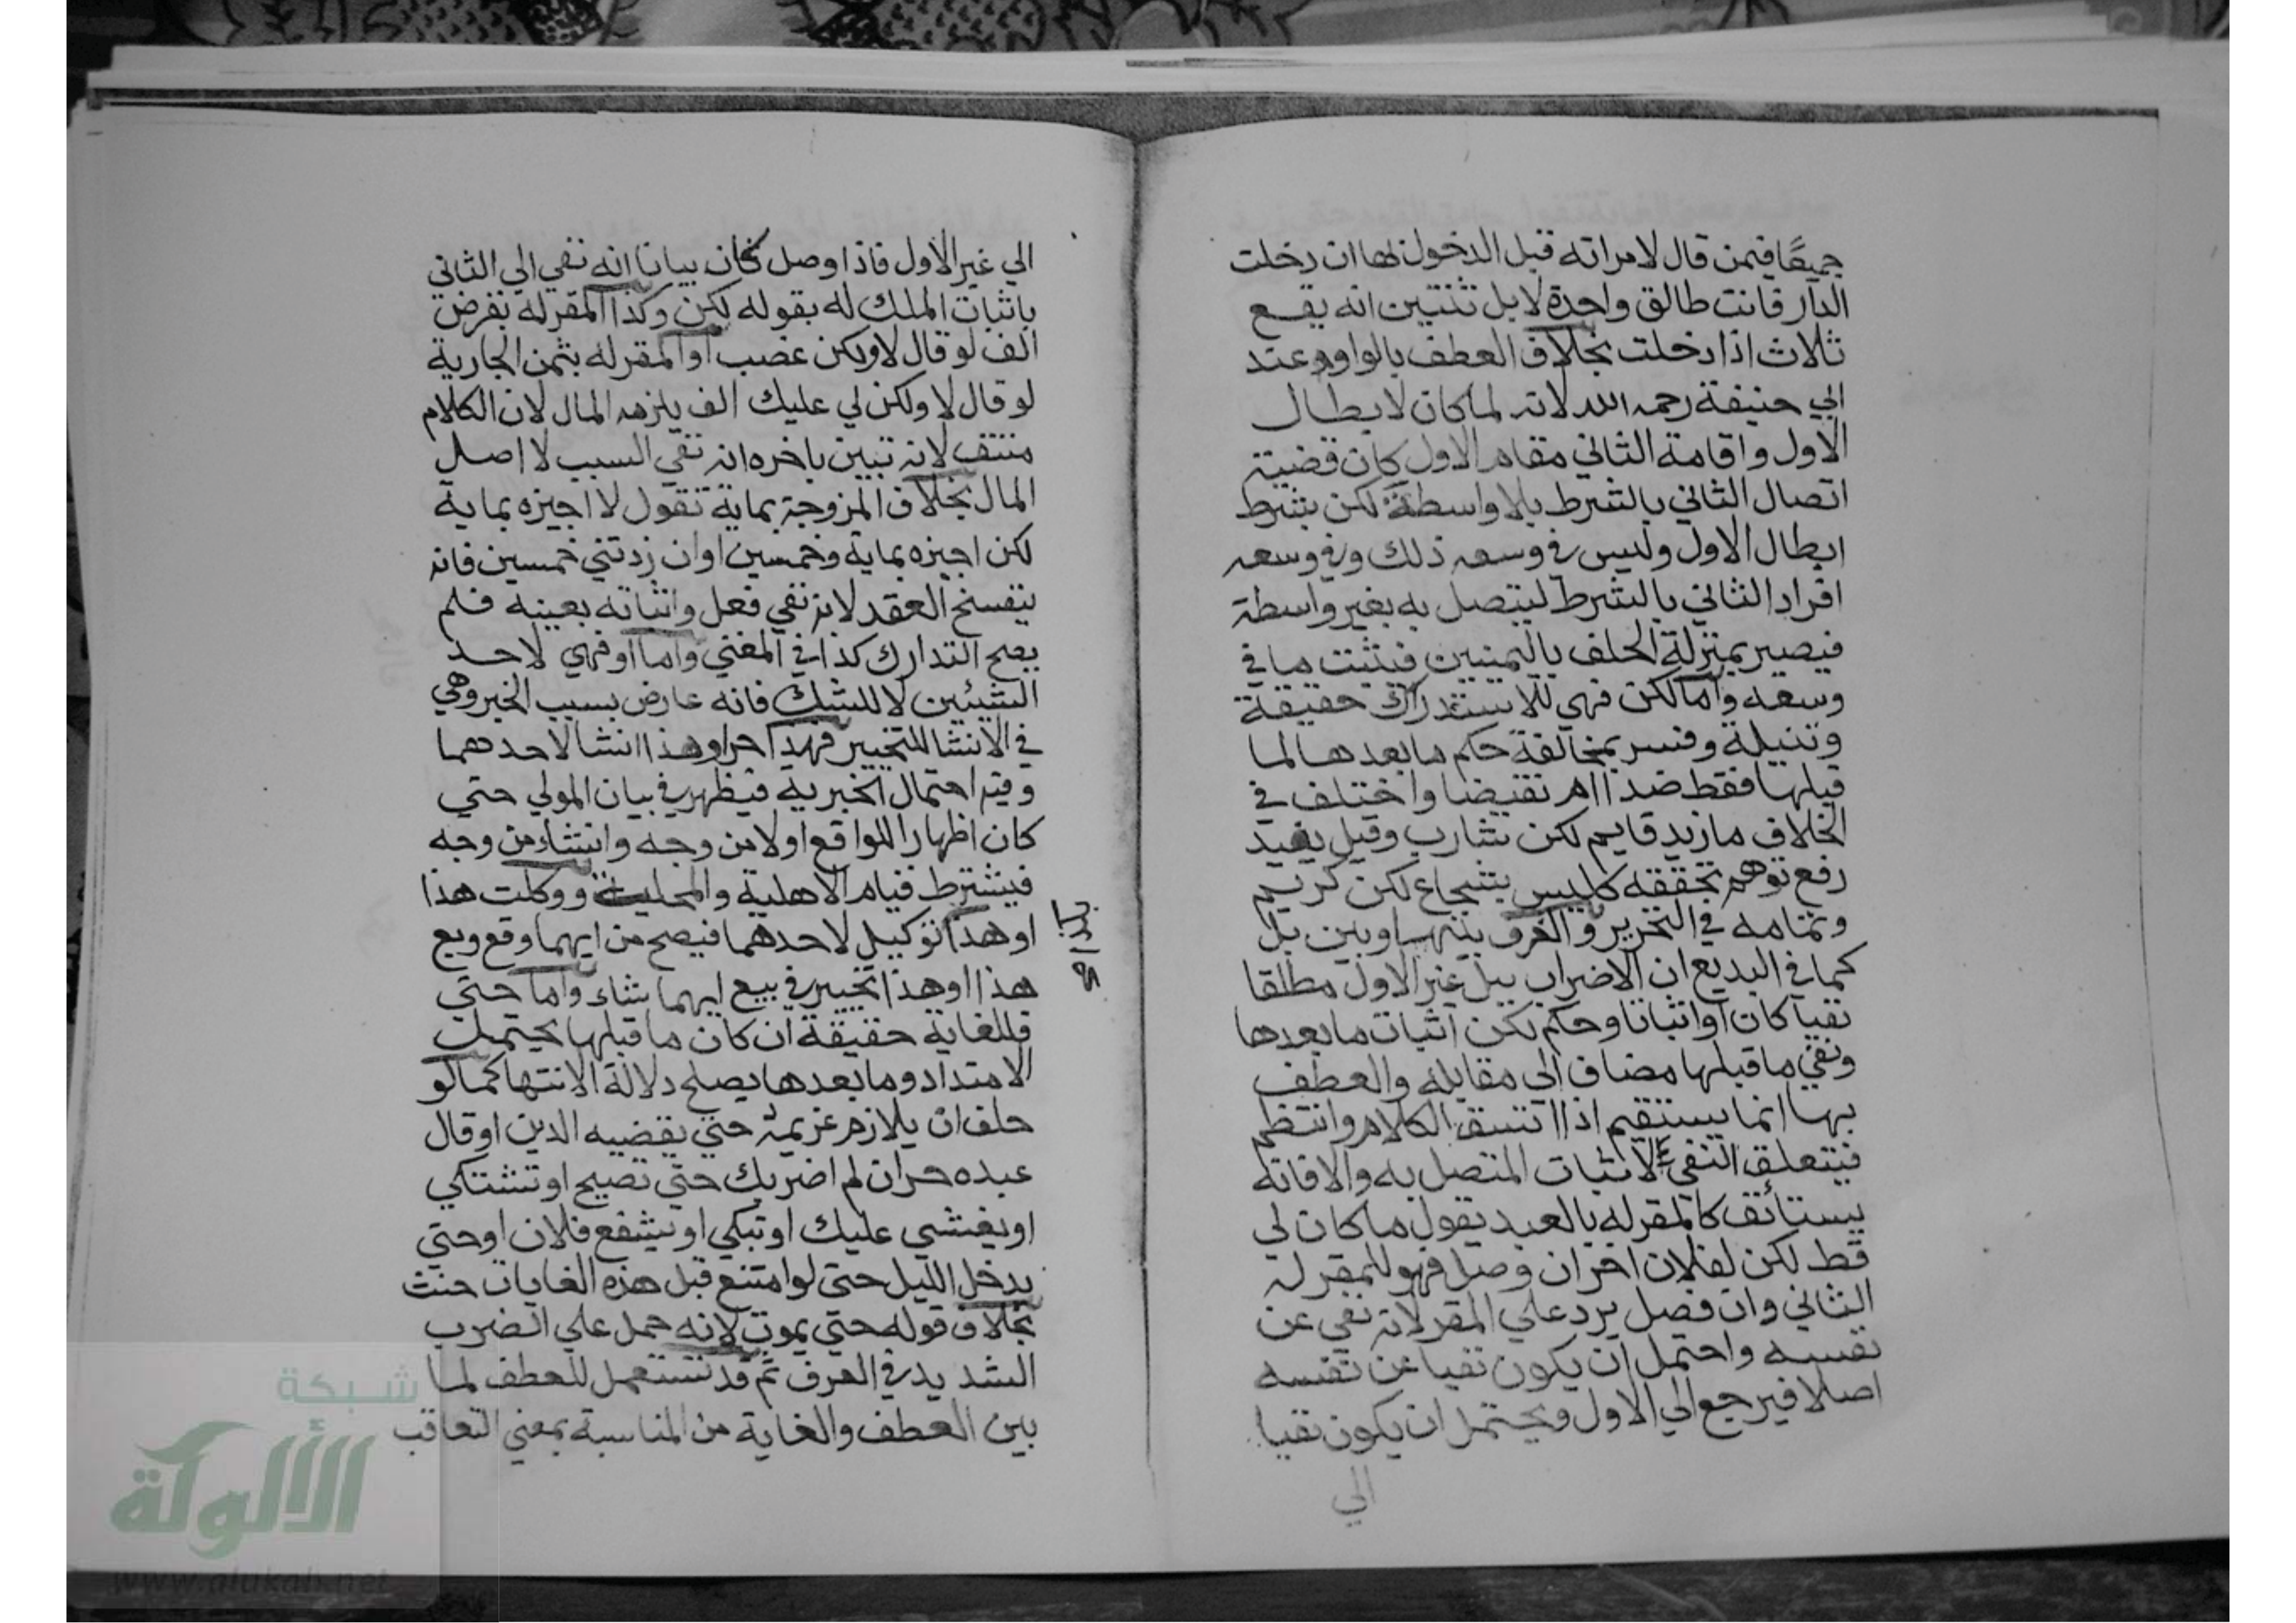 جميعًا فيمن قال لامراته قبل الدخول لها ان دخلت
الدار فانت طالق واحدة لا بل ثنتين انه يقع
ثلاث اذا دخلت بخلاف العطف بالواو عند
ابي حنيفة رحمه الله لانه لما كان لابطال
الاول واقامة الثاني مقام الاول كان قضيته
اتصال الثاني بالشرط بلا واسطة لكن بشرط
ابطال الاول وليس في وسعه ذلك وفي وسعه
افراد الثاني بالشرط ليتصل به بغير واسطة
فيصير بمنزلة الحلف باليمينين فيثبت ما في
وسعه واما لكن فهي للاستدراك حقيقة
وفسر بمخالفة حكم ما بعدها لما
قبلها فقط ضدا ام نقيضا واختلف في
الخلاف ما زيد قايم لكن شارب وقيل يفيد
رفع توهم تحققه كليس بشجاع لكن كريم
وتمامه في التحرير والفرق بينها وبين بل
كما في البديع ان الاضراب ببل عن الاول مطلقا
نفيا كان او اثباتا وحكم لكن اثبات ما بعدها
ونفي ما قبلها مضاف الى مقابله والعطف
بها انما يستقيم اذا اتسق الكلام وانتظم
فيتعلق النفي بالاثبات المتصل به والا فانه
يستأنف كالمقر له بالعبد يقول ما كان لي
قط لكن لفلان اخر ان وصل فهو للمقر له
الثاني وان فصل يرد علي المقر لانه نفي عن
نفسه واحتمل ان يكون نفيا عن نفسه
اصلا فيرجع الي الاول ويحتمل ان يكون نفيا
الي
الي غير الاول فاذا وصل كان بيانا انه نفي الي الثاني
باثبات الملك له بقوله لكن وكذا المقر له بقرض
الف لو قال لا ولكن غصب او المقر له بثمن الجارية
لو قال لا ولكن لي عليك الف يلزمه المال لان الكلام
متسق لانه تبين باخره انه نفي السبب لا اصل
المال بخلاف المزوجة بماية تقول لا اجيزه بماية
لكن اجيزه بماية وخمسين او ان زدتني خمسين فانه
ينفسخ العقد لانه نفي فعل واثباته بعينه فلم
يصح التدارك كذا في المغني واما او فهي لاحد
الشيئين لا للشك فانه عارض بسبب الخبر وهي
في الانشا للتخيير فهذا حر او هذا انشا لاحدهما
وفيه احتمال الخبرية فيظهر في بيان المولي حتي
كان اظهارا للواقع اولا من وجه وانشاء من وجه
فيشترط قيام الاهلية والمحلية ووكلت هذا
او هذا توكيل لاحدهما فيصح من ايهما وقع وبع
هذا او هذا تخيير في بيع ايهما شاء واما حتي
فللغاية حقيقة ان كان ما قبلها يحتمل
الامتداد وما بعدها يصلح دلالة الانتها كما لو
حلف ان يلازم غريمه حتي يقضيه الدين او قال
عبده حر ان لم اضربك حتي تصيح او تشتكي
او يغشي عليك او تبكي او يشفع فلان او حتي
يدخل الليل حتى لو امتنع قبل هذه الغايات حنث
بخلاف قوله حتي يموت لانه حمل علي الضرب
الشديد في العرف ثم قد تستعمل للعطف لما
بين العطف والغاية من المناسبة بمعني التعاقب
شبكة
الألوكة
www.alukah.net